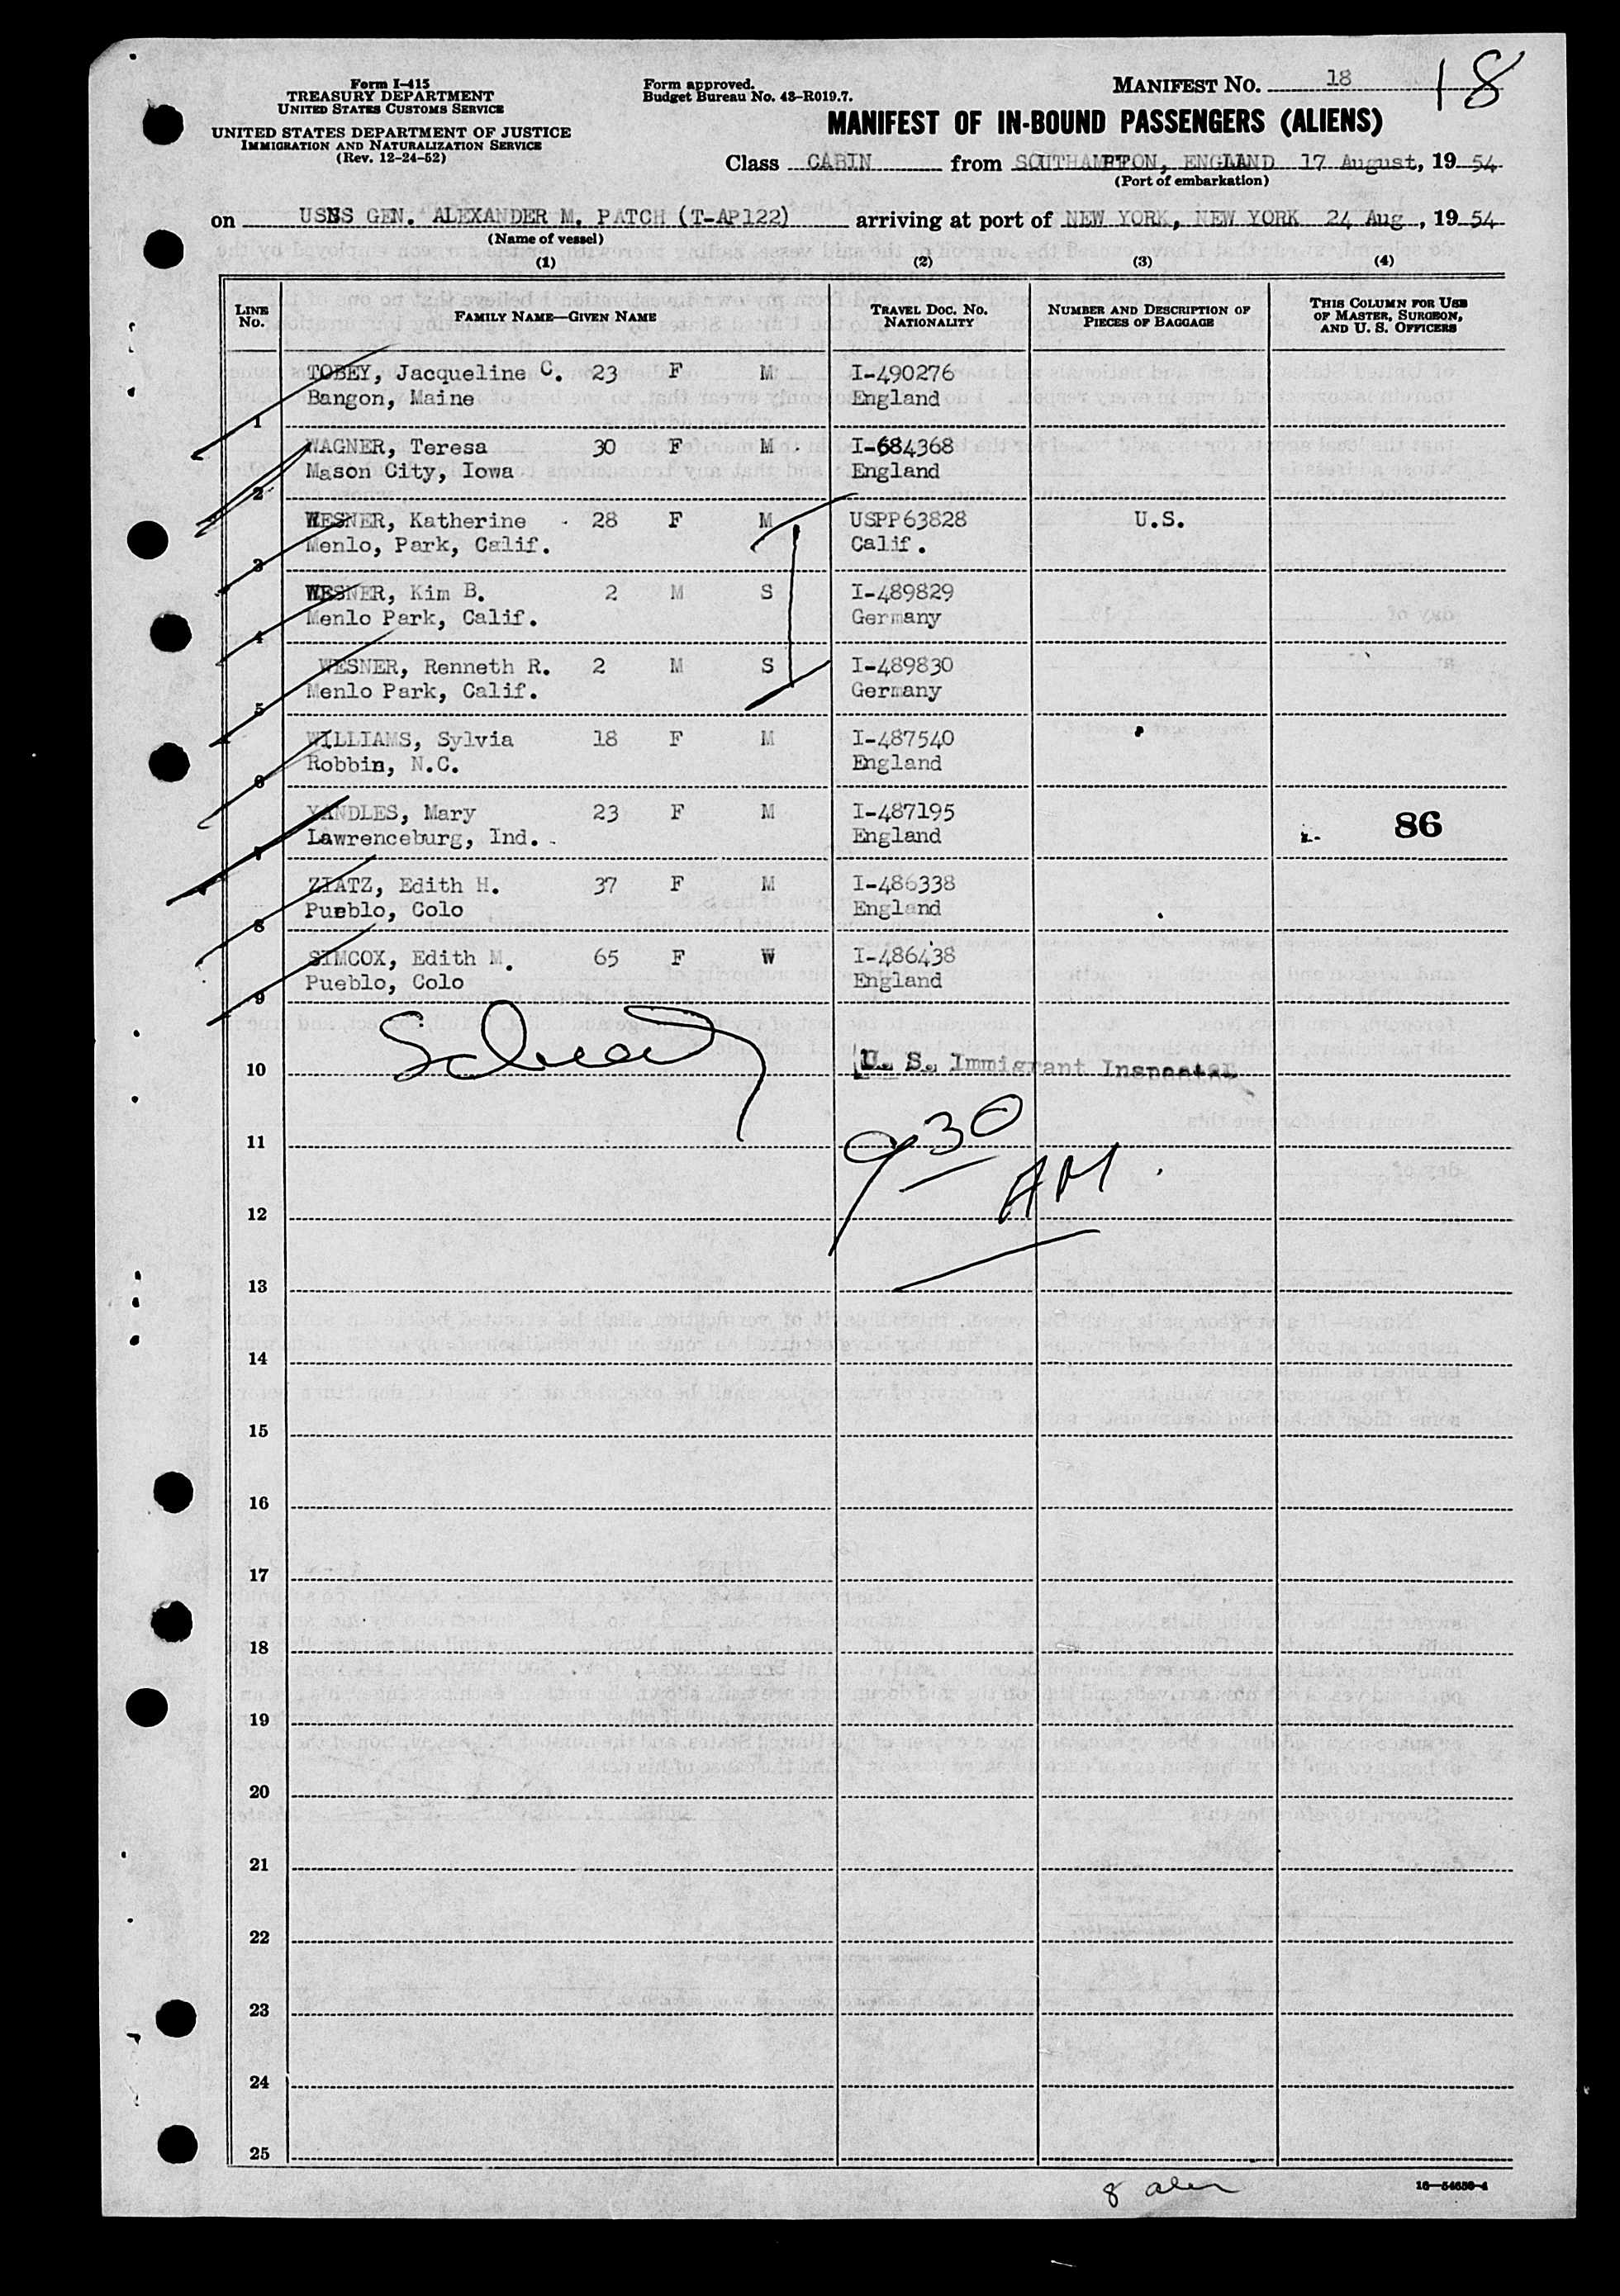 Form I-415
TREASURY DEPARTMENT
UNITED STATES CUSTOMS SERVICE
UNITED STATES DEPARTMENT OF JUSTICE
IMMIGRATION AND NATURALIZATION SERVICE
(Rev. 12-24-52)
Form approved.
Budget Bureau No. 43-R019.7.
MANIFEST NO. 18
18
MANIFEST OF IN-BOUND PASSENGERS (ALIENS)
Class CABIN from SOUTHAMPTON, ENGLAND 17 August, 19 54
(Port of embarkation)
on USNS GEN. ALEXANDER M. PATCH (T-AP122) arriving at port of NEW YORK, NEW YORK 24 Aug, 19 54
(Name of vessel)
(1) (2) (3) (4)
LINE NO. FAMILY NAME—GIVEN NAME TRAVEL DOC. NO. NATIONALITY NUMBER AND DESCRIPTION OF PIECES OF BAGGAGE THIS COLUMN FOR USE OF MASTER, SURGEON, AND U. S. OFFICERS
TOBEY, Jacqueline C. 23 F M I-490276
1 Bangon, Maine England
WAGNER, Teresa 30 F M I-684368
2 Mason City, Iowa England
WESNER, Katherine 28 F M USPP63828 U.S.
3 Menlo, Park, Calif. Calif.
WESNER, Kim B. 2 M S I-489829
4 Menlo Park, Calif. Germany
WESNER, Renneth R. 2 M S I-489830
5 Menlo Park, Calif. Germany
WILLIAMS, Sylvia 18 F M I-487540
6 Robbin, N.C. England
YANDLES, Mary 23 F M I-487195
7 Lawrenceburg, Ind. England 86
ZIATZ, Edith H. 37 F M I-486338
8 Pueblo, Colo England
SIMCOX, Edith M. 65 F W I-486438
9 Pueblo, Colo England
10 U. S. Immigrant Inspector
11 930
12 AM
13
14
15
16
17
18
19
20
21
22
23
24
25
8 alen
16—54650-4